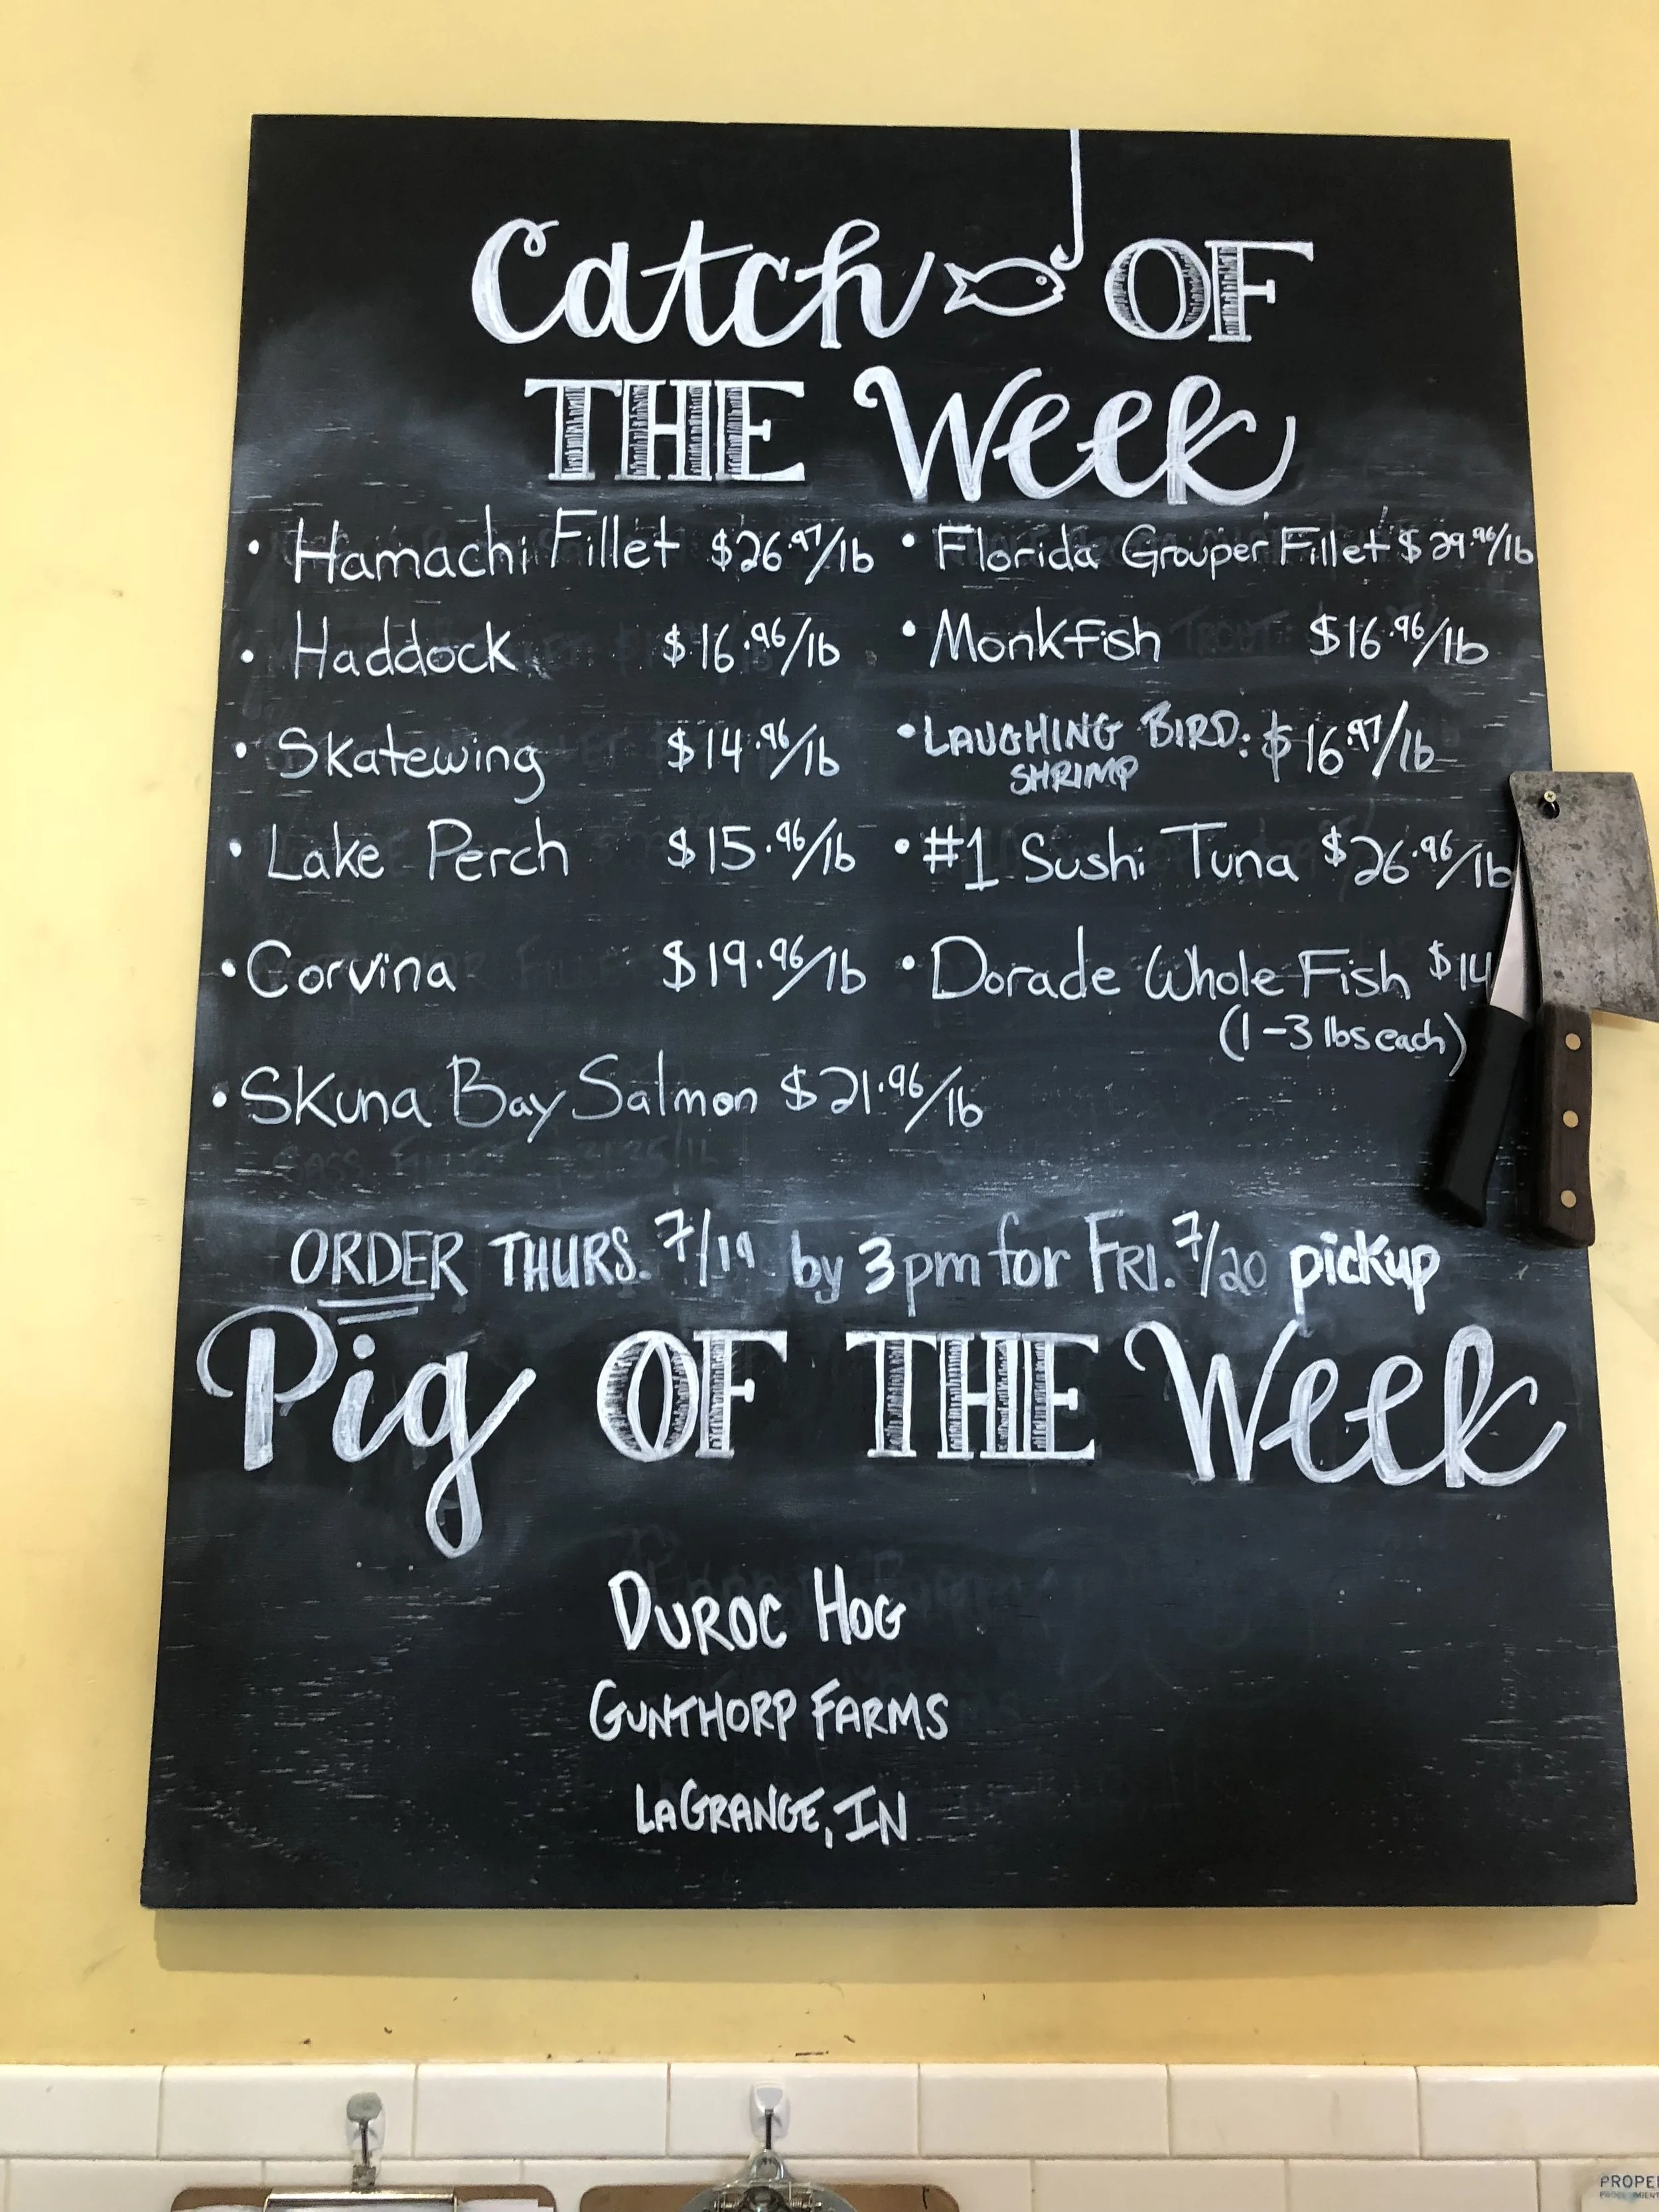 Catch OF
THE Week
• Hamachi Fillet $26.97/lb
• Haddock $16.96/lb
• Skatewing $14.96/lb
• Lake Perch $15.96/lb
• Corvina $19.96/lb
• Skuna Bay Salmon $21.96/lb
• Florida Grouper Fillet $29.96/lb
• Monkfish $16.96/lb
• LAUGHING BIRD: $16.97/lb
SHRIMP
• #1 Sushi Tuna $26.96/lb
• Dorade Whole Fish $14
(1-3 lbs each)
ORDER THURS. 7/19 by 3pm for FRI. 7/20 pickup
Pig OF THE Week
DUROC HOG
GUNTHORP FARMS
LAGRANGE, IN